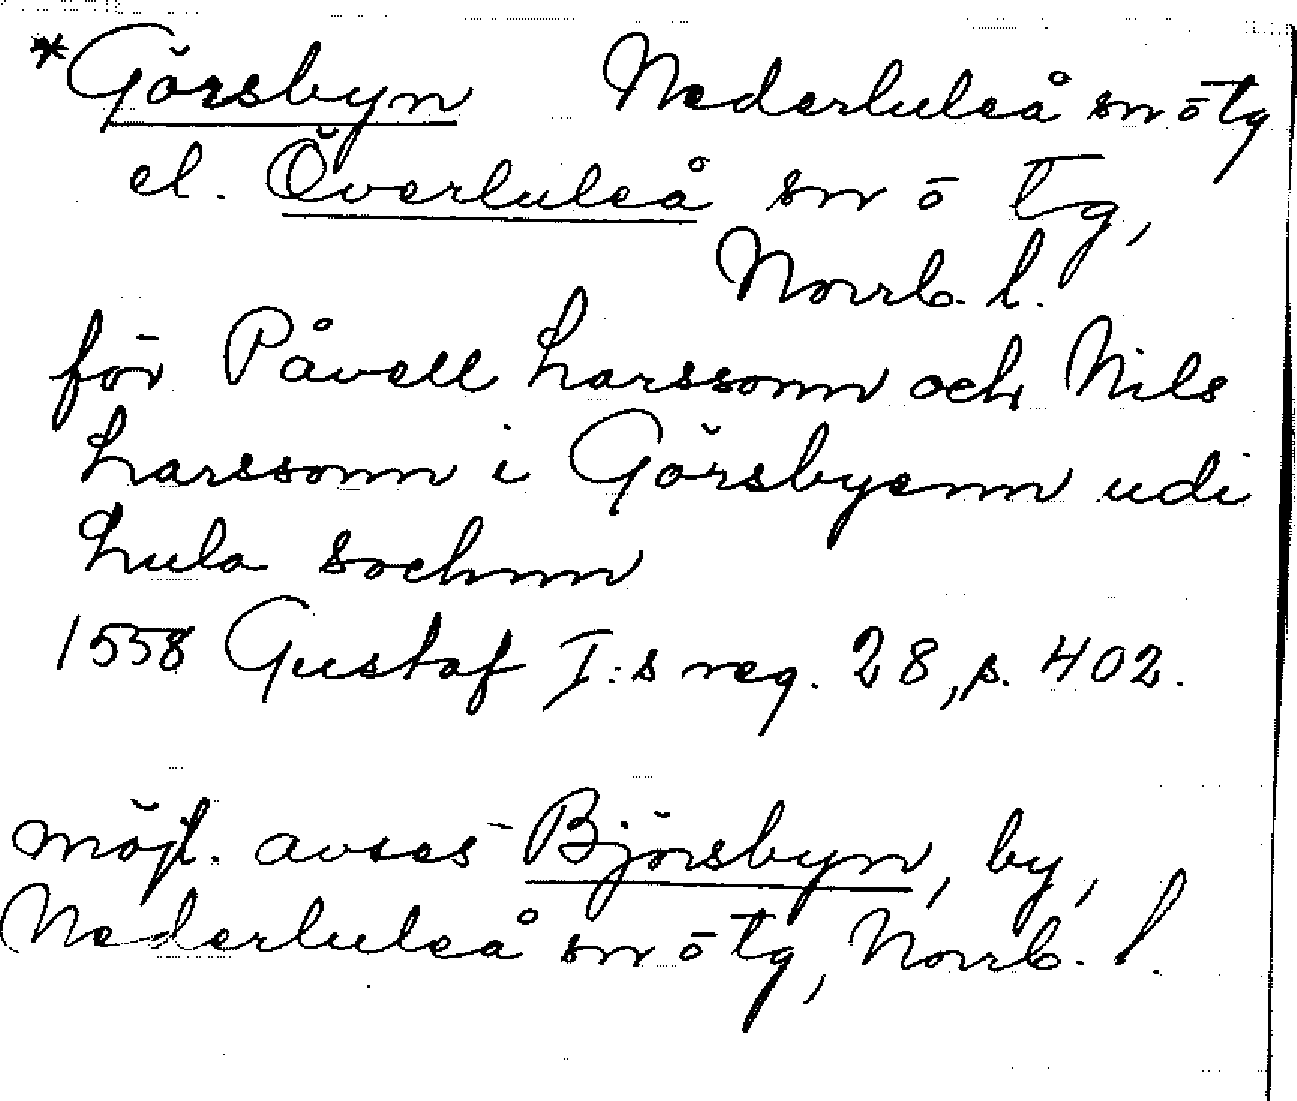 *Görsbyn Nederluleå sn ö tg
el. Överluleå sn ö Tg,
Norrb. l.
för Påvell Larssonn och Nils
Larssonn i Görsbyenn udi
Lula sochnn
1558 Gustaf I:s reg. 28, s. 402.
möjl. avses Björsbyn, by,
Nederluleå sn ö tg, Norrb. l.